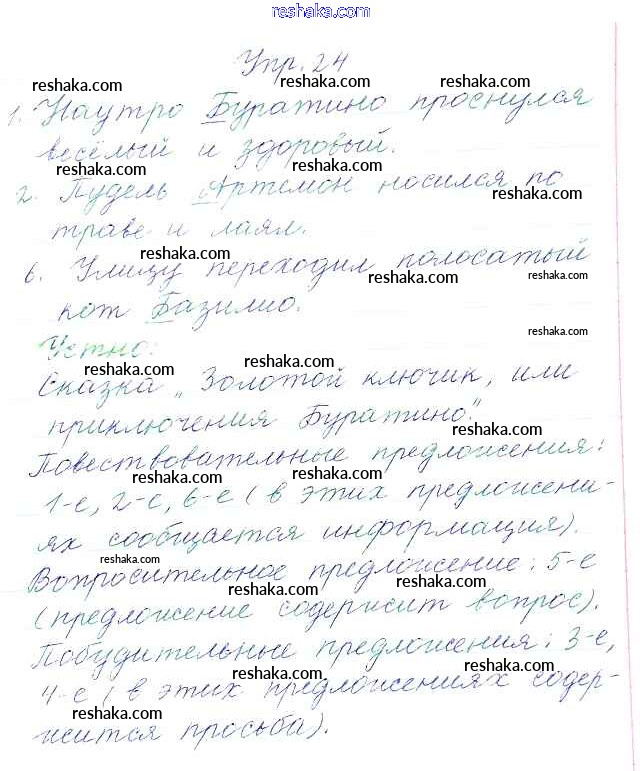 reshaka.com
Упр. 24
reshaka.com reshaka.com reshaka.com
1. Наутро Буратино проснулся
reshaka.com
весёлый и здоровый.
reshaka.com reshaka.com
2. Пудель Артемон носился по
reshaka.com
траве и лаял.
reshaka.com
6. Улицу переходил полосатый
reshaka.com reshaka.com
кот Базилио.
reshaka.com
Устно:
reshaka.com reshaka.com
Сказка „Золотой ключик, или
приключения Буратино".
reshaka.com
Повествовательные предложения:
reshaka.com reshaka.com
1-е, 2-е, 6-е (в этих предложени-
reshaka.com
ях сообщается информация).
reshaka.com
Вопросительное предложение: 5-е
reshaka.com reshaka.com
(предложение содержит вопрос).
Побудительные предложения: 3-е,
reshaka.com reshaka.com
4-е (в этих предложениях содер-
reshaka.com
жится просьба).